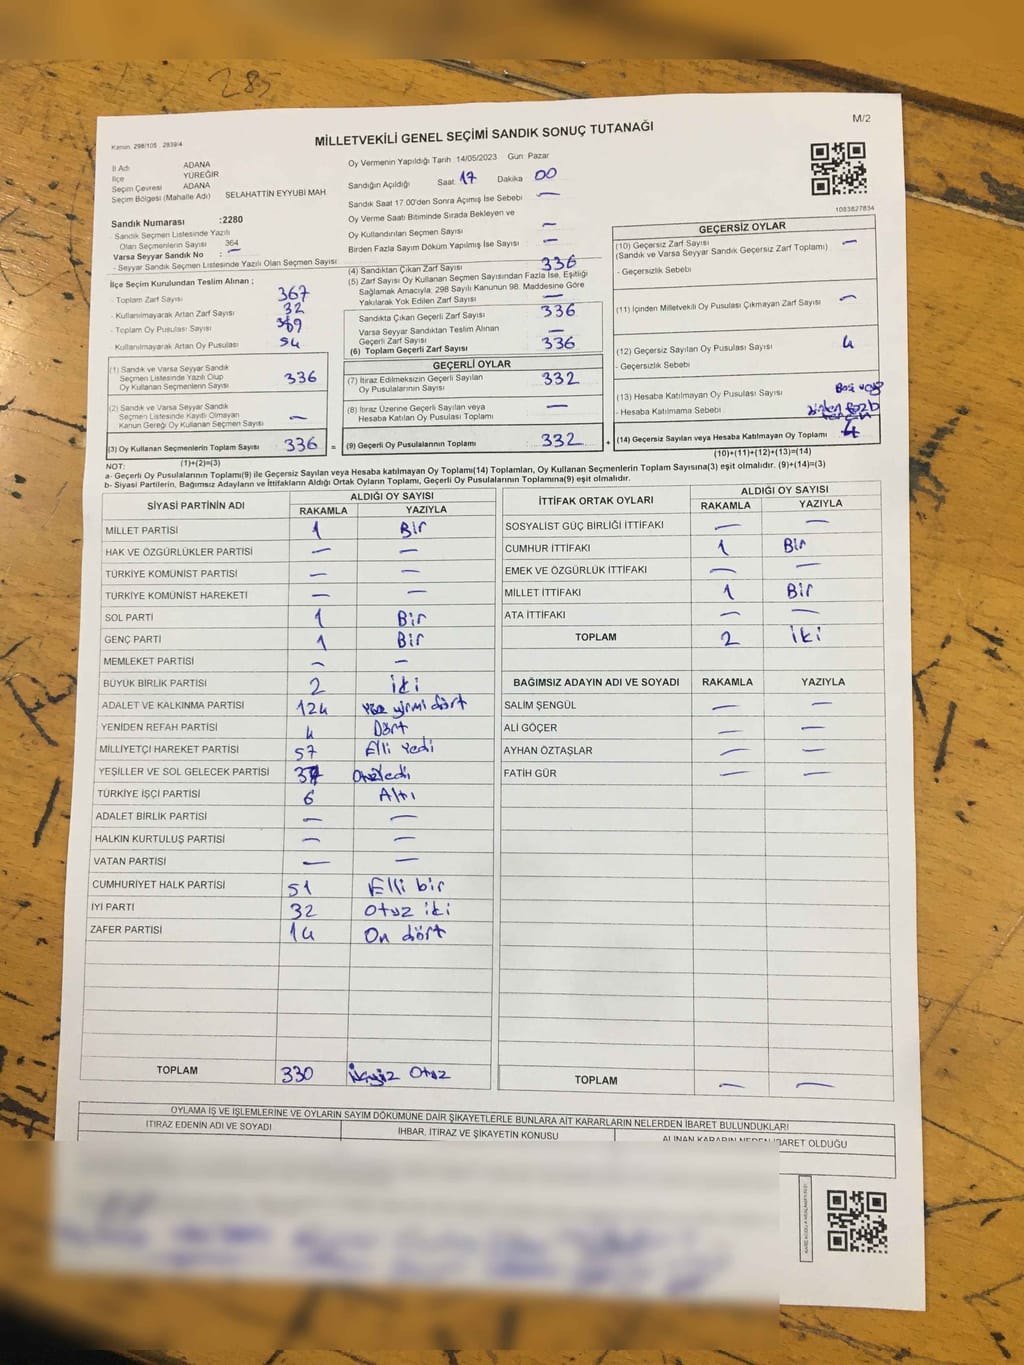 285
M/2
MİLLETVEKİLİ GENEL SEÇİMİ SANDIK SONUÇ TUTANAĞI
Kanun. 298/105 2839/4
İl Adı ADANA
İlçe YÜREĞİR
Seçim Çevresi ADANA
Seçim Bölgesi (Mahalle Adı) SELAHATTİN EYYUBİ MAH
Sandık Numarası :2280
- Sandık Seçmen Listesinde Yazılı
Olan Seçmenlerin Sayısı 364
Varsa Seyyar Sandık No : —
- Seyyar Sandık Seçmen Listesinde Yazılı Olan Seçmen Sayısı
İlçe Seçim Kurulundan Teslim Alınan ;
- Toplam Zarf Sayısı 367
- Kullanılmayarak Artan Zarf Sayısı 32
- Toplam Oy Pusulası Sayısı
- Kullanılmayarak Artan Oy Pusulası 54
(1) Sandık ve Varsa Seyyar Sandık
Seçmen Listesinde Yazılı Olup
Oy Kullanan Seçmenlerin Sayısı 336
(2) Sandık ve Varsa Seyyar Sandık
Seçmen Listesinde Kayıtlı Olmayan
Kanun Gereği Oy Kullanan Seçmen Sayısı —
(3) Oy Kullanan Seçmenlerin Toplam Sayısı 336 =
(1)+(2)=(3)
Oy Vermenin Yapıldığı Tarih 14/05/2023 Gün Pazar
Sandığın Açıldığı Saat 17 Dakika 00
Sandık Saat 17.00'den Sonra Açımış İse Sebebi —
Oy Verme Saati Bitiminde Sırada Bekleyen ve
Oy Kullandırılan Seçmen Sayısı —
Birden Fazla Sayım Döküm Yapılmış İse Sayısı —
(4) Sandıktan Çıkan Zarf Sayısı 336
(5) Zarf Sayısı Oy Kullanan Seçmen Sayısından Fazla İse, Eşitliği
Sağlamak Amacıyla, 298 Sayılı Kanunun 98. Maddesine Göre
Yakılarak Yok Edilen Zarf Sayısı —
Sandıkta Çıkan Geçerli Zarf Sayısı 336
Varsa Seyyar Sandıktan Teslim Alınan
Geçerli Zarf Sayısı —
(6) Toplam Geçerli Zarf Sayısı 336
GEÇERLİ OYLAR
(7) İtiraz Edilmeksizin Geçerli Sayılan
Oy Pusulalarının Sayısı 332
(8) İtiraz Üzerine Geçerli Sayılan veya
Hesaba Katılan Oy Pusulası Toplamı —
(9) Geçerli Oy Pusulalarının Toplamı 332 +
1083827834
GEÇERSİZ OYLAR
(10) Geçersiz Zarf Sayısı —
(Sandık ve Varsa Seyyar Sandık Geçersiz Zarf Toplamı)
- Geçersizlik Sebebi
(11) İçinden Milletvekili Oy Pusulası Çıkmayan Zarf Sayısı —
(12) Geçersiz Sayılan Oy Pusulası Sayısı 4
- Geçersizlik Sebebi
(13) Hesaba Katılmayan Oy Pusulası Sayısı
- Hesaba Katılmama Sebebi
(14) Geçersiz Sayılan veya Hesaba Katılmayan Oy Toplamı 4
(10)+(11)+(12)+(13)=(14)
NOT:
a- Geçerli Oy Pusulalarının Toplamı(9) ile Geçersiz Sayılan veya Hesaba katılmayan Oy Toplamı(14) Toplamları, Oy Kullanan Seçmenlerin Toplam Sayısına(3) eşit olmalıdır. (9)+(14)=(3)
b- Siyasi Partilerin, Bağımsız Adayların ve İttifakların Aldığı Ortak Oyların Toplamı, Geçerli Oy Pusulalarının Toplamına(9) eşit olmalıdır.
SİYASİ PARTİNİN ADI ALDIĞI OY SAYISI
RAKAMLA YAZIYLA
MİLLET PARTİSİ 1 Bir
HAK VE ÖZGÜRLÜKLER PARTİSİ — —
TÜRKİYE KOMÜNİST PARTİSİ — —
TÜRKİYE KOMÜNİST HAREKETİ — —
SOL PARTİ 1 Bir
GENÇ PARTİ 1 Bir
MEMLEKET PARTİSİ — —
BÜYÜK BİRLİK PARTİSİ 2 iki
ADALET VE KALKINMA PARTİSİ 124 yüz yirmi dört
YENİDEN REFAH PARTİSİ 4 Dört
MİLLİYETÇİ HAREKET PARTİSİ 57 Elli yedi
YEŞİLLER VE SOL GELECEK PARTİSİ 37 Otuz yedi
TÜRKİYE İŞÇİ PARTİSİ 6 Altı
ADALET BİRLİK PARTİSİ — —
HALKIN KURTULUŞ PARTİSİ — —
VATAN PARTİSİ — —
CUMHURİYET HALK PARTİSİ 51 Elli bir
İYİ PARTİ 32 Otuz iki
ZAFER PARTİSİ 14 On dört
TOPLAM 330 üçyüz Otuz
İTTİFAK ORTAK OYLARI ALDIĞI OY SAYISI
RAKAMLA YAZIYLA
SOSYALİST GÜÇ BİRLİĞİ İTTİFAKI — —
CUMHUR İTTİFAKI 1 Bir
EMEK VE ÖZGÜRLÜK İTTİFAKI — —
MİLLET İTTİFAKI 1 Bir
ATA İTTİFAKI — —
TOPLAM 2 iki
BAĞIMSIZ ADAYIN ADI VE SOYADI RAKAMLA YAZIYLA
SALİM ŞENGÜL — —
ALİ GÖÇER — —
AYHAN ÖZTAŞLAR — —
FATİH GÜR — —
TOPLAM — —
OYLAMA İŞ VE İŞLEMLERİNE VE OYLARIN SAYIM DÖKÜMÜNE DAİR ŞİKAYETLERLE BUNLARA AİT KARARLARIN NELERDEN İBARET BULUNDUKLARI
İTİRAZ EDENİN ADI VE SOYADI İHBAR, İTİRAZ VE ŞİKAYETİN KONUSU ALINAN KARARIN NEDEN İBARET OLDUĞU